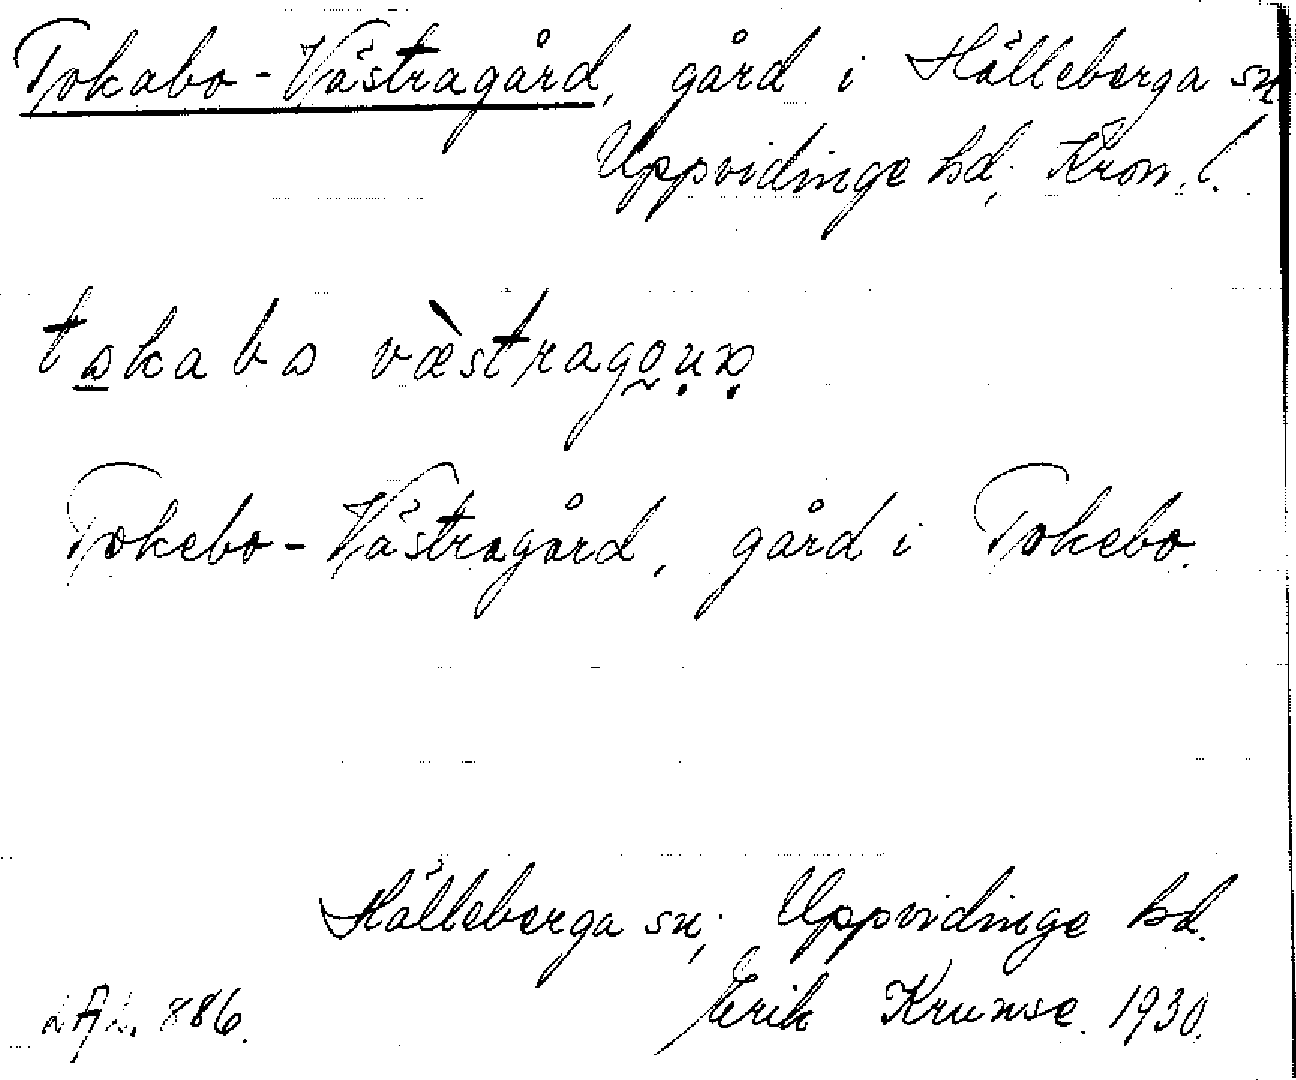 Tokabo-Västragård, gård i Hälleberga sn
Uppvidinge hd; Kron. l.
Tokebo-Västragård, gård i Tokebo.
Hälleberga sn; Uppvidinge hd.
886. Erik Krunse. 1930.